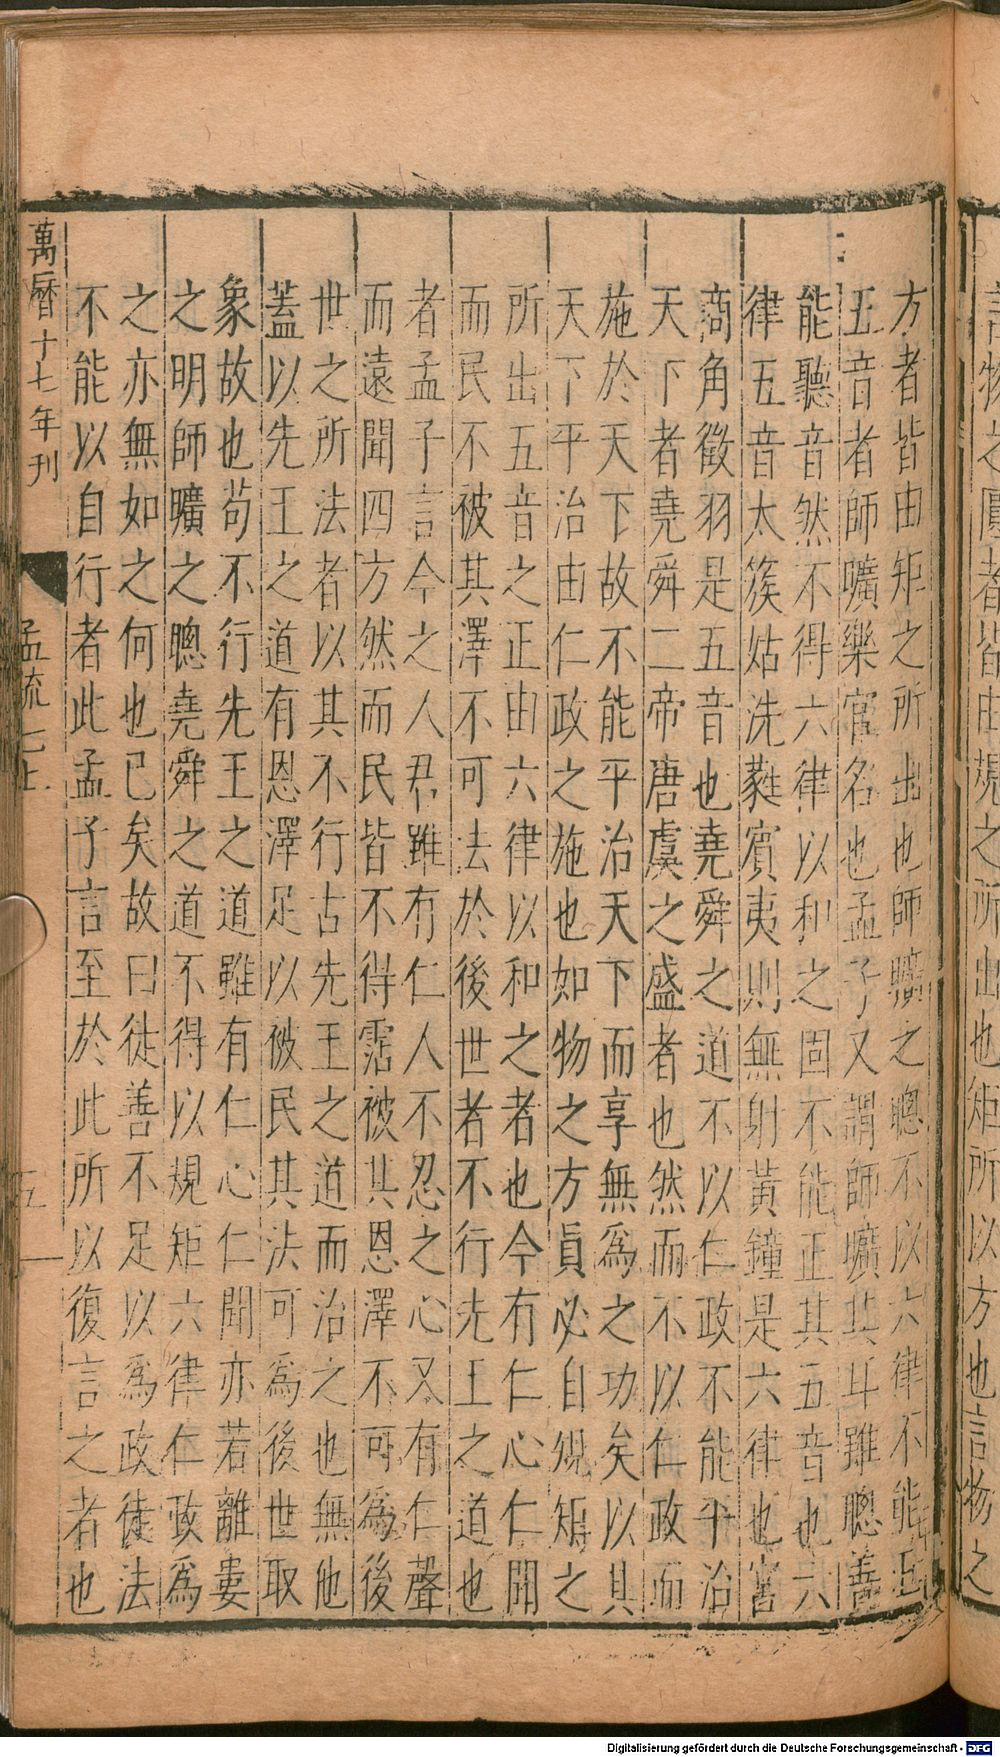 言物之圓者皆由規之所出也矩所以方也言物之
方者皆由矩之所出也師曠之聰不以六律不能正
五音者師曠樂官名也孟子又謂師曠其耳雖聰善
能聽音然不得六律以和之固不能正其五音也六
律五音太簇姑洗蕤賓夷則無射黃鐘是六律也宮
商角徵羽是五音也堯舜之道不以仁政不能平治
天下者堯舜二帝唐虞之盛者也然而不以仁政而
施於天下故不能平治天下而享無為之功矣以其
天下平治由仁政之施也如物之方員必自規矩之
所出五音之正由六律以和之者也今有仁心仁聞
而民不被其澤不可法於後世者不行先王之道也
者孟子言今之人君雖有仁人不忍之心又有仁聲
而遠聞四方然而民皆不得霑被其恩澤不可為後
世之所法者以其不行古先王之道而治之也無他
蓋以先王之道有恩澤足以被民其法可為後世取
象故也苟不行先王之道雖有仁心仁聞亦若離婁
之明師曠之聰堯舜之道不得以規矩六律仁政為
之亦無如之何也已矣故曰徒善不足以為政徒法
不能以自行者此孟子言至於此所以復言之者也
萬曆十七年刊 孟疏七上 五
Digitalisierung gefördert durch die Deutsche Forschungsgemeinschaft - DFG